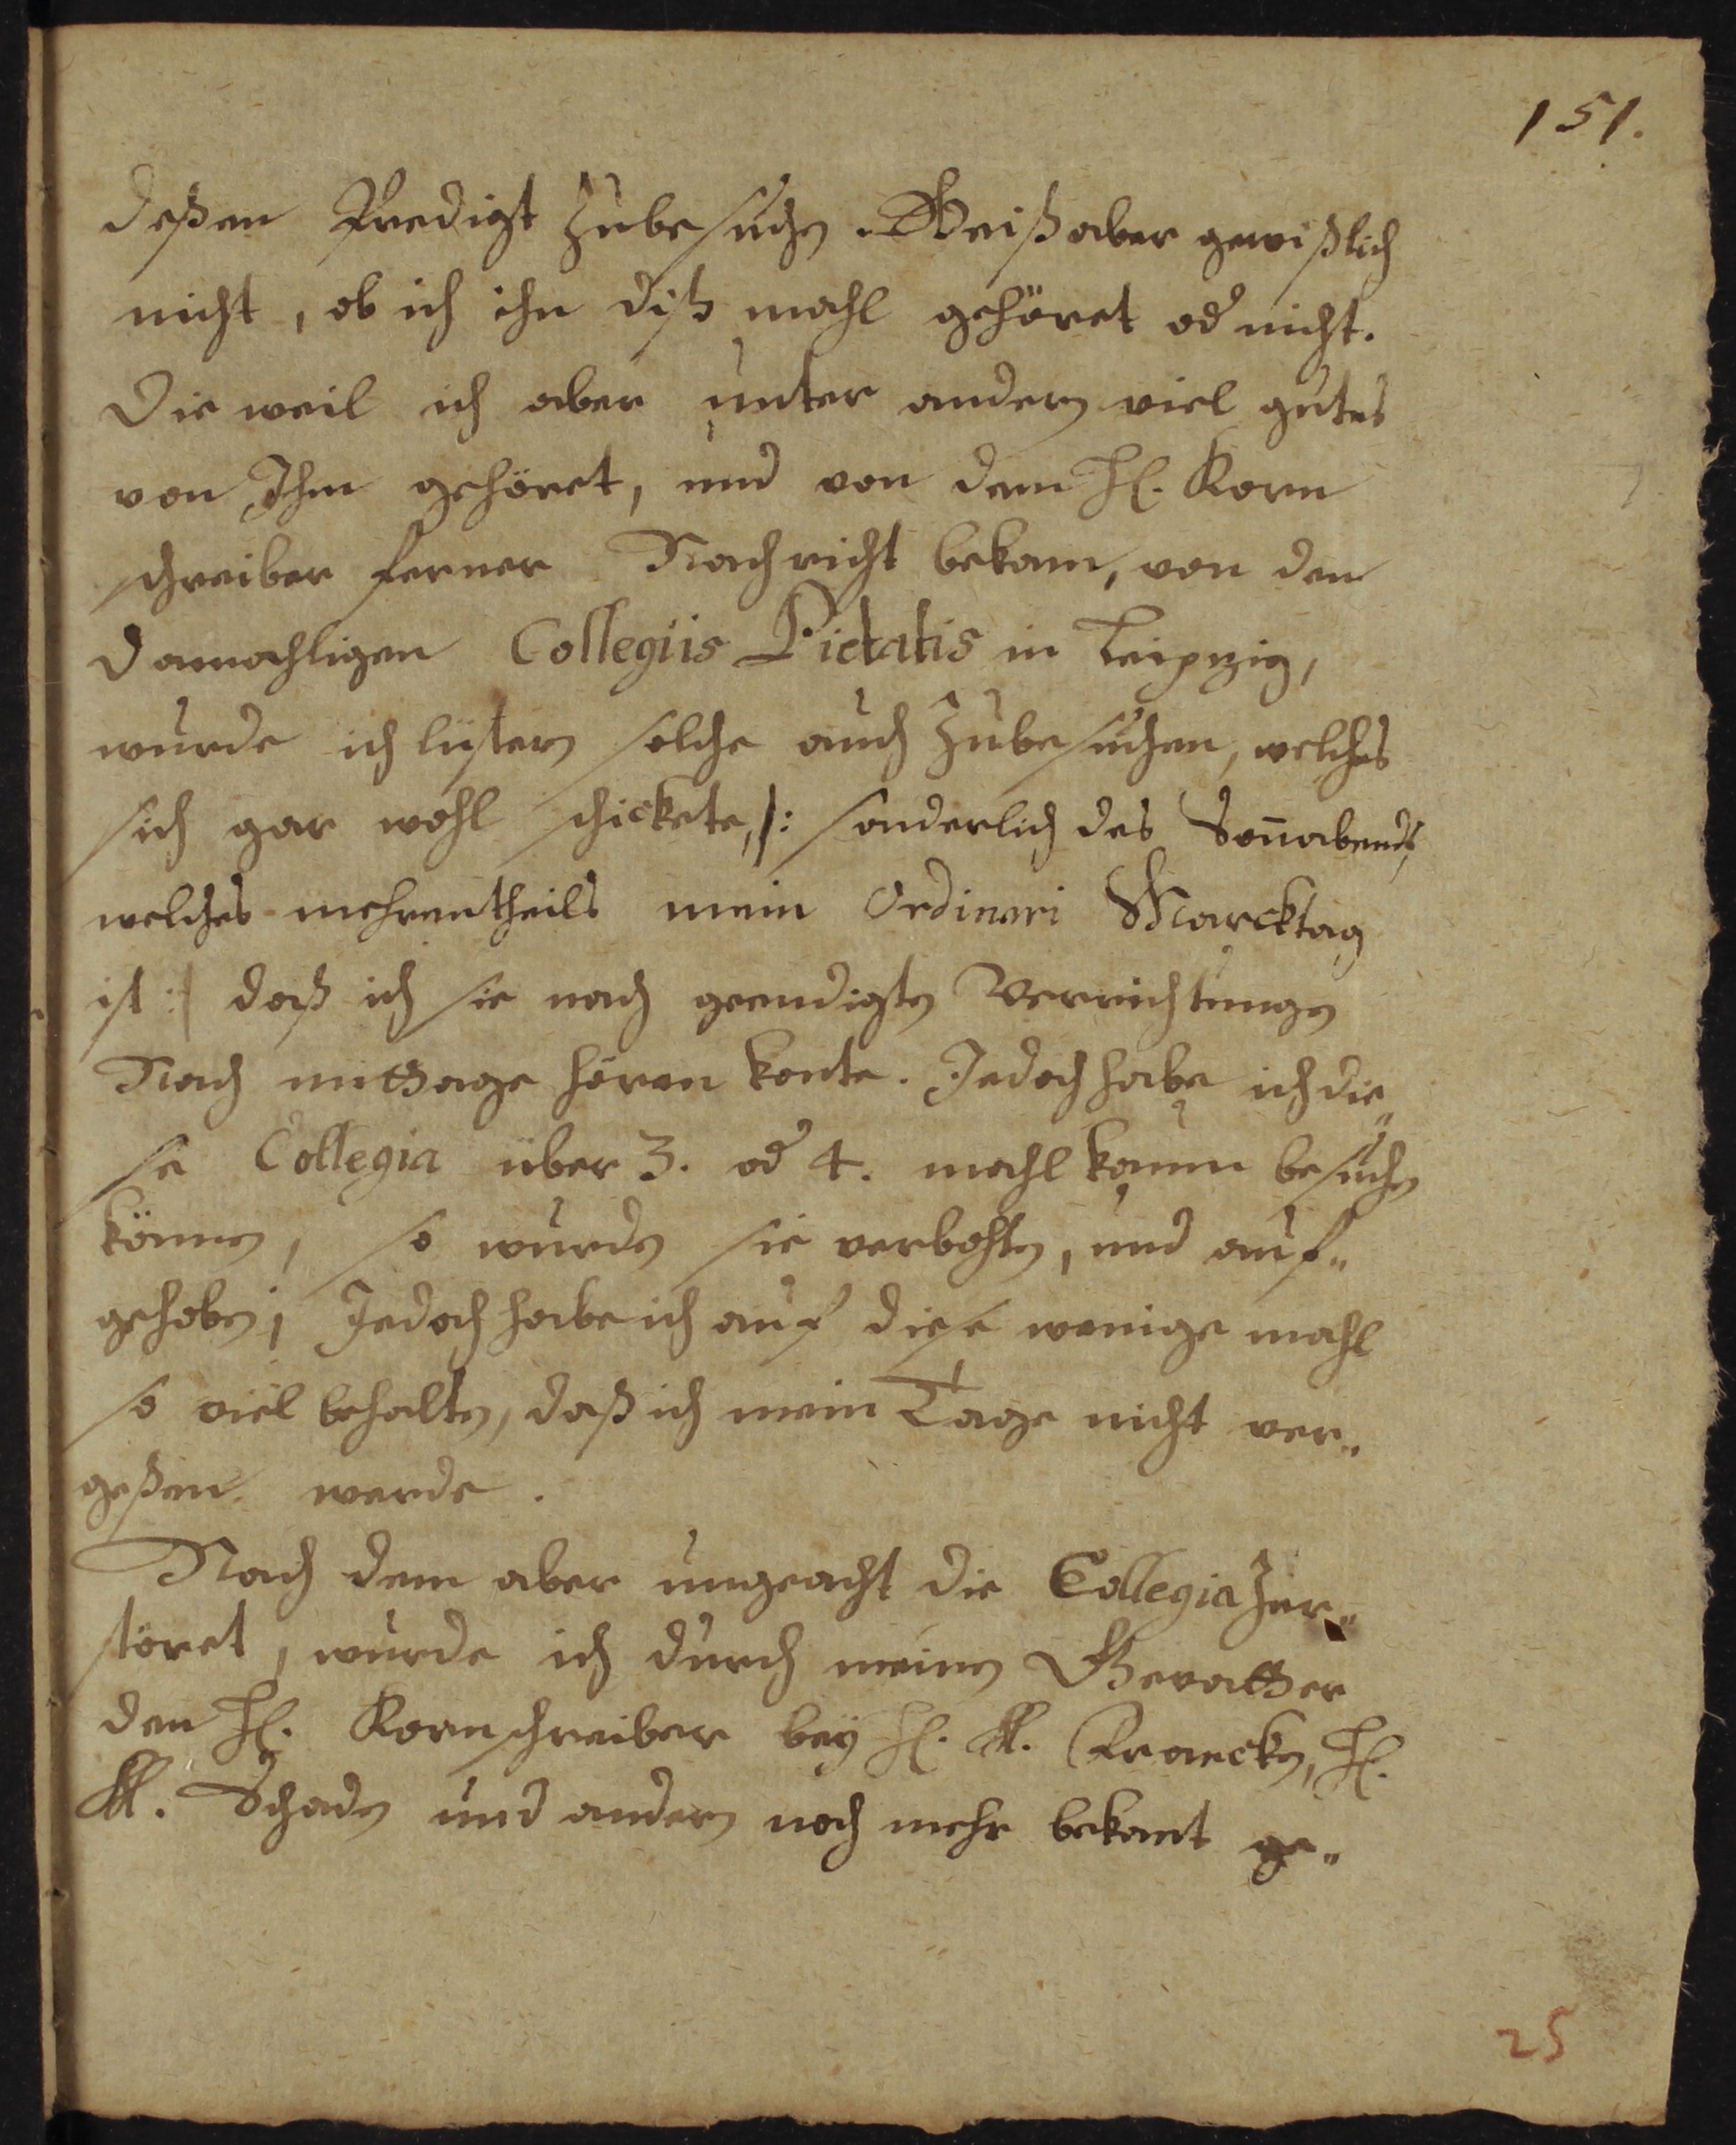 151.
deßen Predigt zubesuchen. Weiß aber gewißlich
nicht, ob ich ihn diß mahl gehöret od nicht.
Die weil ich aber unter andern viel gutes
von Ihm gehöret, und von dem H. Korn
schreiber ferner Nachricht bekam, von den
damahligen Collegiis Pietatis in Leipzig,
wurde ich lüstern solche auch zubesuchen, welches
sich gar wohl schickete, |: sonderlich des Sonabends,
welches mehrentheils mein Ordinari Marcktag
ist :| daß ich sie nach geendigten Verrichtungen
Nach mittage hören konte. Jedoch habe ich die„
se Collegia über 3. od 4. mahl kaum besuchen
können, so wurden sie verbohten, und auf„
gehoben; Jedoch habe ich auf diese wenige mahl
so viel behalten, daß ich mein Tage nicht ver„
geßen werde.
Nach dem aber ungeacht die Collegia zer„
störet, wurde ich durch meinen Gevatter
den H. Kornschreiber bey H. M. Francken, H.
M. Schaden und andern noch mehr bekant ge„
25